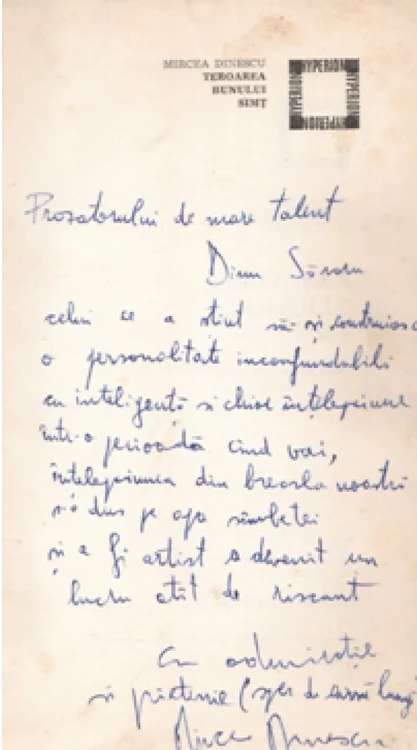 MIRCEA DINESCU
TEROAREA
BUNULUI
SIMȚ
HYPERION
HYPERION
HYPERION
HYPERION
Prozatorului de mare talent
Dinu Săraru
celui ce a știut să-și construiasc
o personalitate inconfundabilă
cu inteligență și chiar înțelepciune
într-o perioadă cînd vai,
înțelepciunea din breasla noastră
s-a dus pe apa sîmbetei
și a fi artist a devenit un
lucru atît de riscant
Cu admirație
și prietenie (sper de cursă lungă
Mircea Dinescu